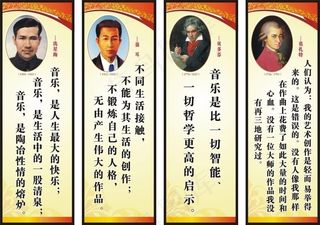 ——冼星海
音乐,是人生最大的快乐;
音乐,是生活中的一股清泉;
音乐,是陶冶性情的熔炉。
——聂耳
不同生活接触,
不能为其生活的创作;
不锻炼自己的人格,
无由产生伟大的作品。
——贝多芬
音乐是比一切智能、
一切哲学更高的启示。
——莫扎特
人们认为:我的艺术创作是轻而易举得
来的。这是错误的。没有人像我那样
在作曲上花费了如此大量的时间和
心血。没有一位大师的作品我没
有再三地研究过。